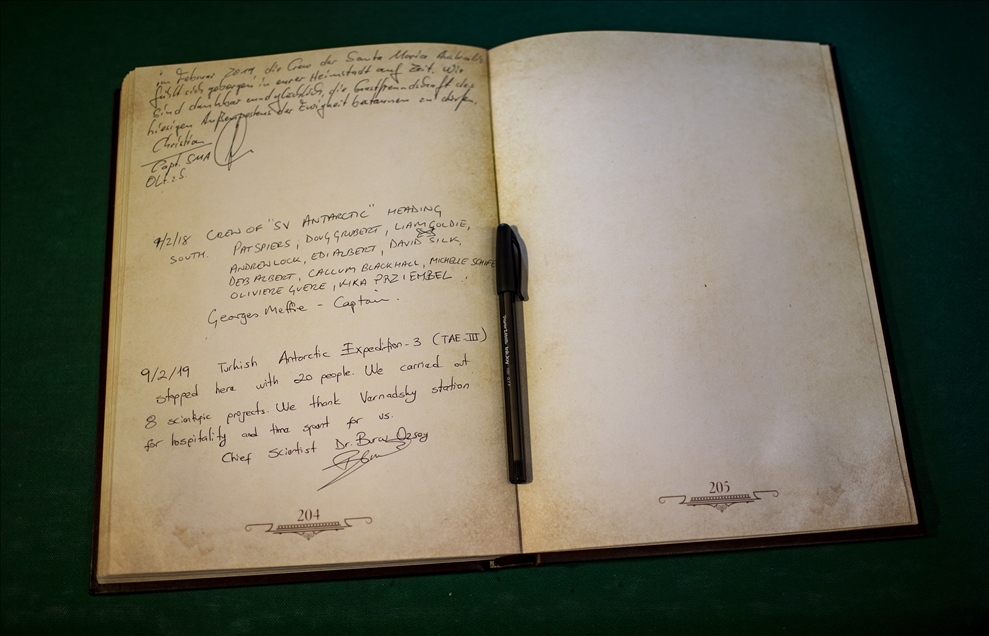 im Februar 2019, die Crew der Santa Maria Australis
fühlt sich geborgen in eurer Heimstadt auf Zeit. Wir
sind dankbar und glücklich, die Gastfreundschaft des
hiesigen Außenpostens der Ewigkeit bestaunen zu dürfen.
Christian
Capt. SMA
9/2/18 CREW OF "SV ANTARCTIC" HEADING
SOUTH. PAT SPIERS, DOUG GRUBERT, LIAM GOLDIE,
ANDREW LOCK, EDI ALBERT, DAVID SILK,
DEB ALBERT, CALLUM BLACKHALL, MICHELLE
OLIVIERE GUERE, KIKA PRZIEMBEL.
Georges Meffre - Captain.
9/2/19 Turkish Antarctic Expedition-3 (TAE-III)
stopped here with 20 people. We carried out
8 scientific projects. We thank Varnadsky station
for hospitality and time spent for us.
Chief Scientist Dr. Burcu Ozsoy
204
205